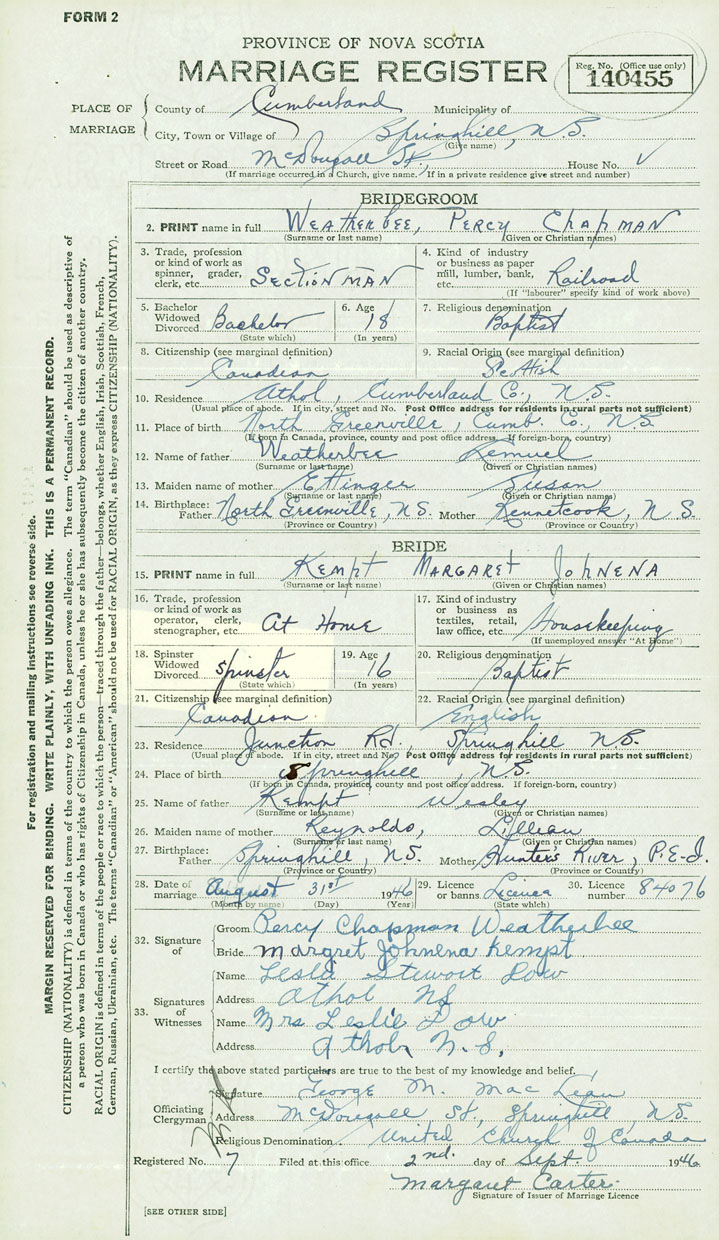 FORM 2
PROVINCE OF NOVA SCOTIA
MARRIAGE REGISTER
Reg. No. (Office use only)
140455
PLACE OF MARRIAGE
County of Cumberland Municipality of
City, Town or Village of Springhill, N.S.
(Give name)
Street or Road McDougall St., House No. √
(If marriage occurred in a Church, give name. If in a private residence give street and number)
BRIDEGROOM
2. PRINT name in full WEATHERBEE, PERCY CHAPMAN
(Surname or last name) (Given or Christian names)
3. Trade, profession or kind of work as spinner, grader, clerk, etc. SECTION MAN
4. Kind of industry or business as paper mill, lumber, bank, etc. Railroad
(If "labourer" specify kind of work above)
5. Bachelor Widowed Divorced Bachelor
(State which)
6. Age 18
(In years)
7. Religious denomination
Baptist
8. Citizenship (see marginal definition)
Canadian
9. Racial Origin (see marginal definition)
Scottish
10. Residence Athol, Cumberland Co., N.S.
(Usual place of abode. If in city, street and No. Post Office address for residents in rural parts not sufficient)
11. Place of birth North Greenville, Cumb. Co., N.S.
(If born in Canada, province, county and post office address. If foreign-born, country)
12. Name of father Weatherbee Lemuel
(Surname or last name) (Given or Christian names)
13. Maiden name of mother Ettinger Susan
(Surname or last name) (Given or Christian names)
14. Birthplace: Father North Greenville, N.S. Mother Kennetcook, N.S.
(Province or Country) (Province or Country)
BRIDE
15. PRINT name in full KEMPT MARGARET JOHNENA
(Surname or last name) (Given or Christian names)
16. Trade, profession or kind of work as operator, clerk, stenographer, etc. At Home
17. Kind of industry or business as textiles, retail, law office, etc. Housekeeping
(If unemployed answer "At Home")
18. Spinster Widowed Divorced Spinster
(State which)
19. Age 16
(In years)
20. Religious denomination
Baptist
21. Citizenship (see marginal definition)
Canadian
22. Racial Origin (see marginal definition)
English
23. Residence Junction Rd. Springhill N.S.
(Usual place of abode. If in city, street and No. Post Office address for residents in rural parts not sufficient)
24. Place of birth Springhill, N.S.
(If born in Canada, province, county and post office address. If foreign-born, country)
25. Name of father Kempt Wesley
(Surname or last name) (Given or Christian names)
26. Maiden name of mother Reynolds, Lillian
(Surname or last name) (Given or Christian names)
27. Birthplace: Father Springhill, N.S. Mother Hunter's River, P.E.I.
(Province or Country) (Province or Country)
28. Date of marriage August 31st 1946
(Month by name) (Day) (Year)
29. Licence or banns Licence
(State which)
30. Licence number 84076
32. Signature of
Groom Percy Chapman Weatherbee
Bride Margret Johnena Kempt
33. Signatures of Witnesses
Name Stewart Dow
Address Athol NS
Name Mrs Leslie Dow
Address Athol, N.S,
I certify the above stated particulars are true to the best of my knowledge and belief.
Officiating Clergyman
Signature George M. MacLean
Address McDougall St., Springhill, N.S.
Religious Denomination United Church of Canada
Registered No. 7 Filed at this office 2nd. day of Sept. 1946
Margaret Carter
Signature of Issuer of Marriage Licence
[SEE OTHER SIDE]
For registration and mailing instructions see reverse side.
MARGIN RESERVED FOR BINDING. WRITE PLAINLY, WITH UNFADING INK. THIS IS A PERMANENT RECORD.
CITIZENSHIP (NATIONALITY) is defined in terms of the country to which the person owes allegiance. The term "Canadian" should be used as descriptive of
a person who was born in Canada or who has rights of Citizenship in Canada, unless he or she has subsequently become the citizen of another country.
RACIAL ORIGIN is defined in terms of the people or race to which the person—traced through the father—belongs, whether English, Irish, Scottish, French,
German, Russian, Ukrainian, etc. The terms "Canadian" or "American" should not be used for RACIAL ORIGIN, as they express CITIZENSHIP (NATIONALITY).